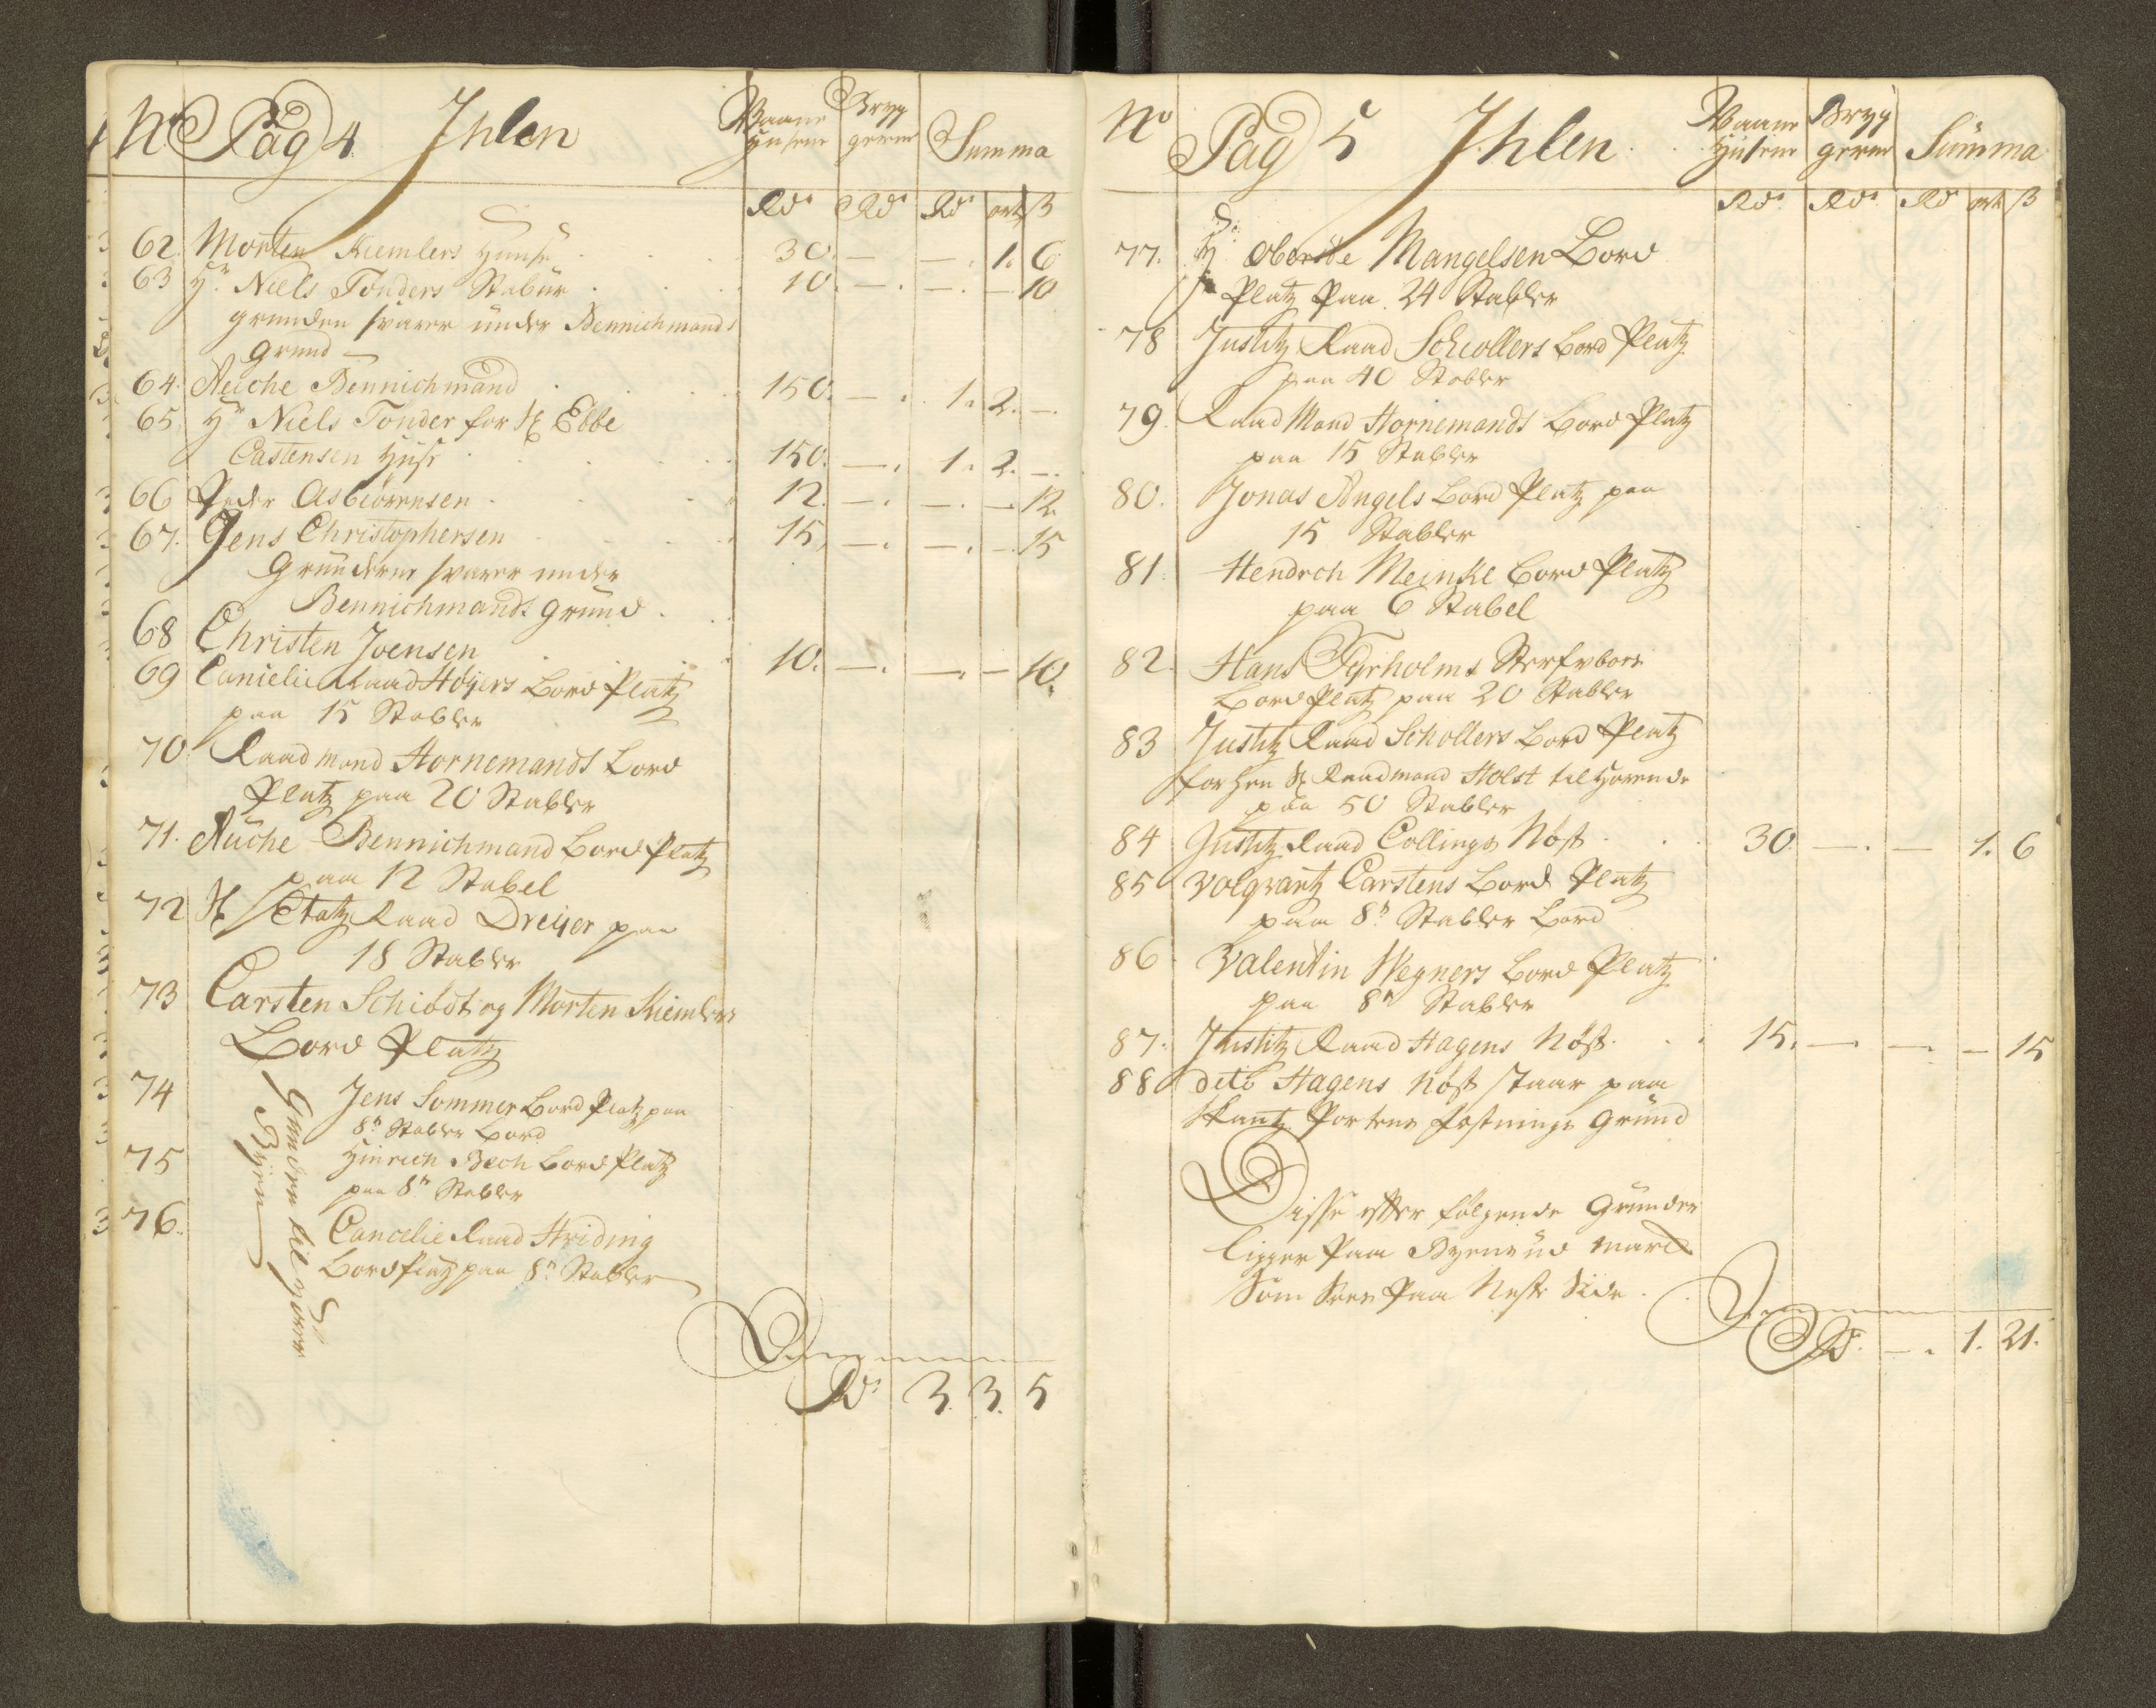 No Pag 4. Ihlen Waane Husene Bryggerne Summa
Rdr Rdr Rdr ort ß
62. Morten Kiemlers Huuse 30. — — 1. 6
63 Hr. Niels Tonders Stabür 10. — — — 10
grunden svarer under Bennichmands
Grund —
64. Aüche Bennichmand 150. — 1. 2. —
65. Hr Niels Tonder for Hr Ebbe
Castensen Huse 150. — 1. 2. —
66 Peder Asbiörensen 12. — — — 12.
67. Jens Christophersen 15. — — — 15
Grunderne svarer under
Bennichmands grund.
68 Christen Joensen 10. — — — 10.
69 Cancelie Raad Höÿers Bord Platz
paa 15 Stabler
70. Raadmand Hornemands Bord
Platz paa 20 Stabler
71. Aüche Bennichmand Bord Platz
paa 12 Stabel
72 Hr Etatz Raad Dreÿer paa
18 Stabler
73 Carsten Schiödt og Morten Kiemlers
Bord Platz
74 Jens Sommer Bord Platz paa
8te Stabler Bord
75 Hinrich Bech Bord Platz
paa 8te Stabler
76. Cancelie Raad Hriding
Bord Platz paa 8te Stabler
Grunden tilhörer
Byen
Rdr 3. 3. 5
No Pag 5 Ihlen. Waane Husene Bryggerne Summa
Rdr. Rdr. Rdr ort ß
77. Hr Oberste Mangelsen Bord
Platz Paa 24 Stabler
78 Justitz Raad Schiollers Bord Platz
paa 40 Stabler
79. Raad Mand Hornemands Bord Platz
paa 15 Stabler
80. Jonas Angels Bord Platz paa
15 Stabler
81. Hendrch Meinke Bord Platz
paa 6 Stabel
82. Hans Tÿrholms
Bord Platz paa 20 Stabler
83 Justitz Raad Schollers Bord Platz
forhen Hr Raadmand Holst tilhörende
paa 50 Stabler
84 Justitz Raad Collings Nöst 30 — — 1. 6
85 Volqvartz Carstens Bord Platz
paa 8te Stabler Bord
86 Valentin Wegners Bord Platz
paa 8te Stabler
87. Justitz Raad Hagens Nöst. 15. — — — 15
88 dito Hagens Nöst staar paa
Skantz Portens Festnings Grund
Disse efter fölgende Grunder
ligger Paa Byens ud mark
Som Sees Paa Neste Side.
Rdr. — 1. 21.